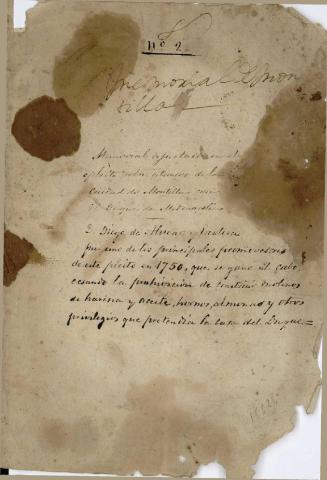 nº 2
Memorial de Mon
tilla
Memorial ajustado en el
pleito sobre de la
Ciudad de Montilla con
el Duque de Medinaceli
D. Diego de Alvear y
fue uno de los principales promovedores
de este pleito en 1750, que se ganó al cabo
cesando la prohibicion de construir molinos
de harina y aceite, hornos, almonas y otros
privilegios que pretendia la casa del Duque.=